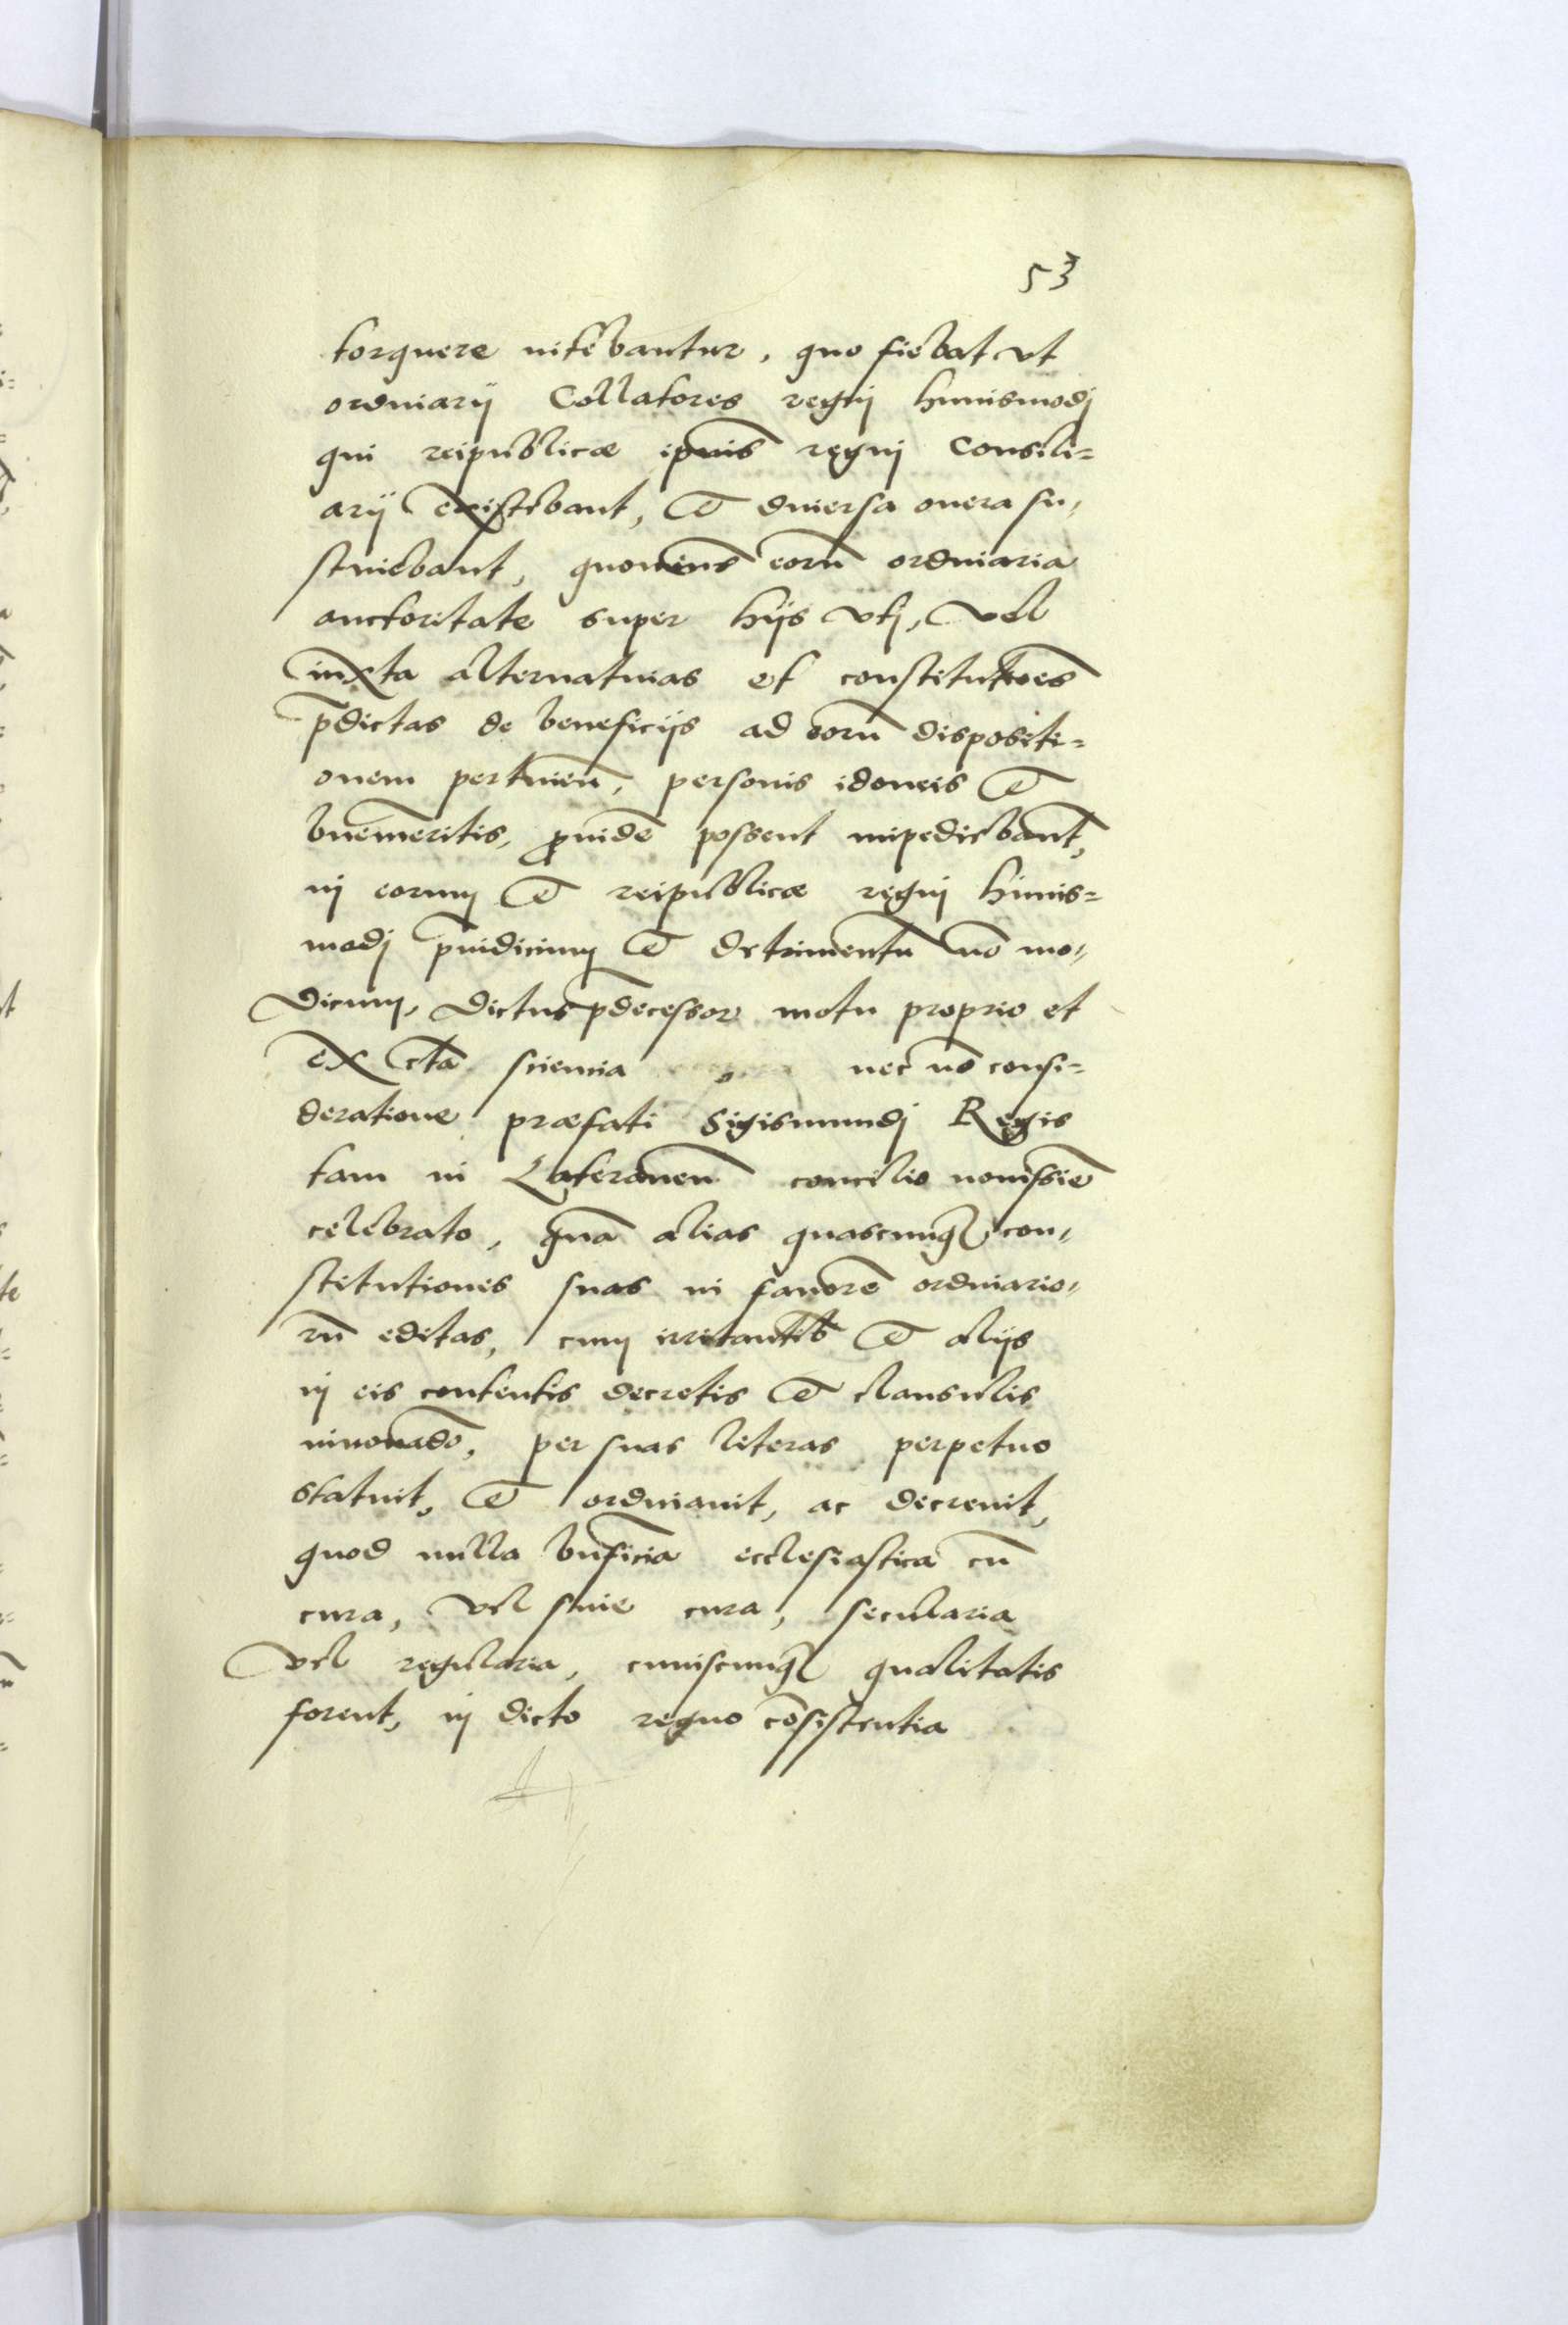 53
torquere nitebantur, quo fiebat vt
ordinarij Collatores regnij huiusmodj
qui reipublicæ ip̄ius regnj Consili=
arij existebant, et diuersa onera su,
stinebant, quominus eorū ordinaria
auctoritate super hijs vtj, vel
iuxta alternatiuas et constitutōes
p̄dictas de beneficijs ad eorū dispositi=
onem pertineñ, personis idoneis et
bn̄emeritis, ꝓuidē possent impediebant̄,
in eorum et reipublicæ regnj huius=
modj p̄iudicium et detrimentū nō mo,
dicum, dictus p̄decessor motu proprio et
ex cta sciencia nec nō consi=
deratione præfati Sigismundj Regis
tam in Lateraneñ concilio nouissīe
celebrato, quā alias quascunq̃ con,
stitutiones suas in fauorē ordinario,
rū editas, cum irritantib et alijs
in eis contentis decretis et clausulis
innouādo, per suas literas perpetuo
statuit, et ordinauit, ac decreuit,
quod nulla bn̄ficia ecclesiastica cū
cura, vel sine cura, secularia
vel regularia, cuiuscunq̃ qualitatis
forent, in dicto regno cōsistentia